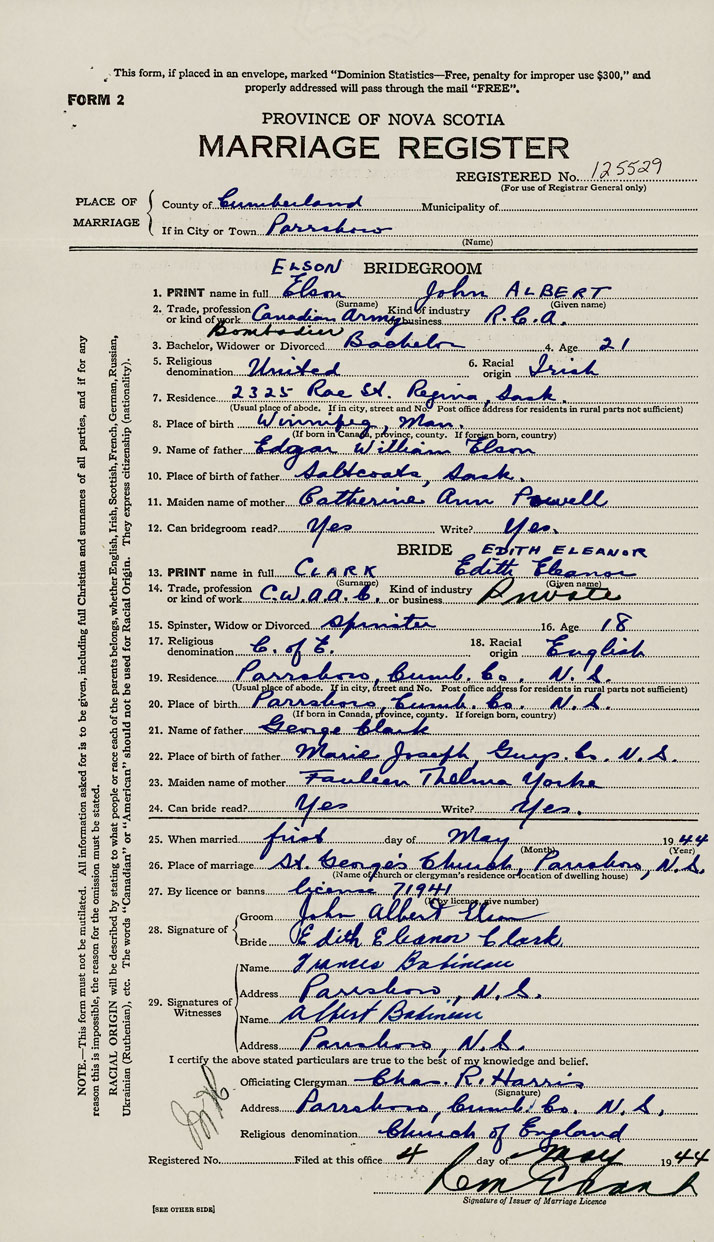 This form, if placed in an envelope, marked "Dominion Statistics—Free, penalty for improper use $300," and
properly addressed will pass through the mail "FREE".
FORM 2
PROVINCE OF NOVA SCOTIA
MARRIAGE REGISTER
REGISTERED No. 125529
(For use of Registrar General only)
PLACE OF MARRIAGE
County of Cumberland Municipality of
If in City or Town Parrsboro
(Name)
ELSON BRIDEGROOM
1. PRINT name in full Elson John ALBERT
(Surname) (Given name)
2. Trade, profession or kind of work Canadian Army Kind of industry or business R.C.A.
Bombadier
3. Bachelor, Widower or Divorced Bachelor 4. Age 21
5. Religious denomination United 6. Racial origin Irish
7. Residence 2325 Rae St. Regina, Sask.
(Usual place of abode. If in city, street and No. Post office address for residents in rural parts not sufficient)
8. Place of birth Winnipeg, Man.
(If born in Canada, province, county. If foreign born, country)
9. Name of father Edgar William Elson
10. Place of birth of father Saltcoats, Sask.
11. Maiden name of mother Catherine Ann Powell
12. Can bridegroom read? Yes Write? Yes.
BRIDE EDITH ELEANOR
13. PRINT name in full CLARK Edith Eleanor
(Surname) (Given name)
14. Trade, profession or kind of work C.W.A.A.C. Kind of industry or business Private
15. Spinster, Widow or Divorced Spinster 16. Age 18
17. Religious denomination C. of E. 18. Racial origin English
19. Residence Parrsboro, Cumb. Co. N.S.
(Usual place of abode. If in city, street and No. Post office address for residents in rural parts not sufficient)
20. Place of birth Parrsboro, Cumb. Co. N.S.
(If born in Canada, province, county. If foreign born, country)
21. Name of father George Clark
22. Place of birth of father Marie Joseph, Guys. Co. N.S.
23. Maiden name of mother Fauleen Thelma Yorke
24. Can bride read? Yes Write? Yes.
25. When married first day of May 1944
(Month) (Year)
26. Place of marriage St. George's Church, Parrsboro, N.S.
(Name of church or clergyman's residence or location of dwelling house)
27. By licence or banns license 71941
(If by licence, give number)
28. Signature of
Groom John Albert Elson
Bride Edith Eleanor Clark
29. Signatures of Witnesses
Name Frances Babineau
Address Parrsboro, N.S.
Name Albert Babineau
Address Parrsboro, N.S.
I certify the above stated particulars are true to the best of my knowledge and belief.
Officiating Clergyman Chas. R. Harris
(Signature)
Address Parrsboro, Cumb. Co. N.S.
Religious denomination Church of England
Registered No. Filed at this office 4 day of May 1944
Signature of Issuer of Marriage Licence
[SEE OTHER SIDE]
NOTE.—This form must not be mutilated. All information asked for is to be given, including full Christian and surnames of all parties, and if for any
reason this is impossible, the reason for the omission must be stated.
RACIAL ORIGIN will be described by stating to what people or race each of the parents belongs, whether English, Irish, Scottish, French, German, Russian,
Ukrainian (Ruthenian), etc. The words "Canadian" or "American" should not be used for Racial Origin. They express citizenship (nationality).